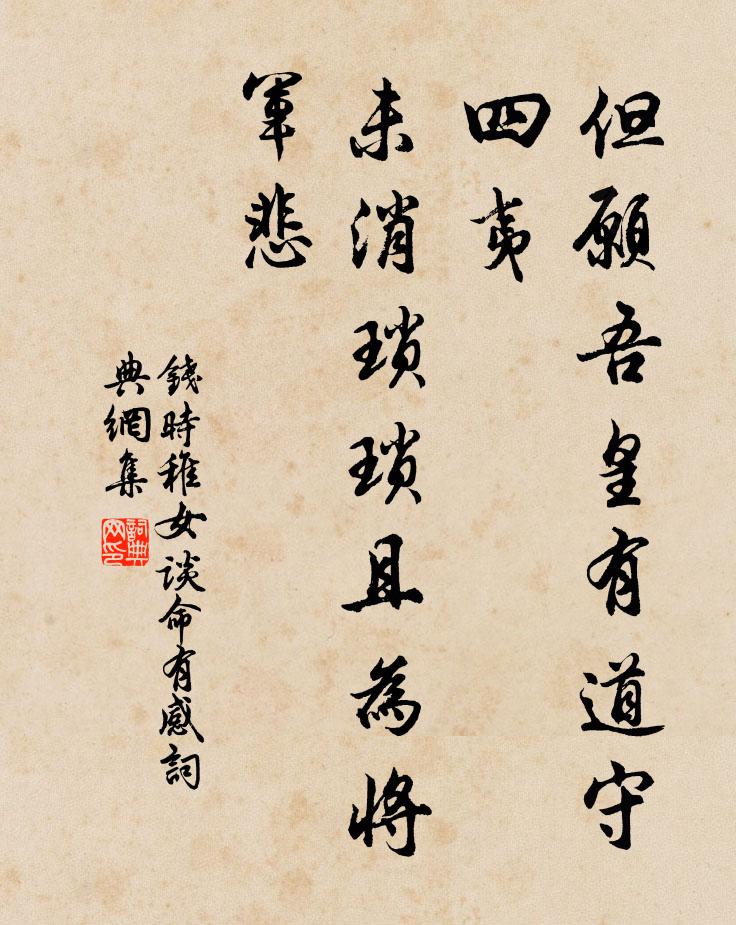 但願吾皇有道守
四夷
未消瑣瑣且為將
軍悲
錢時稚女談命有感詞
典網集
詞典
網印